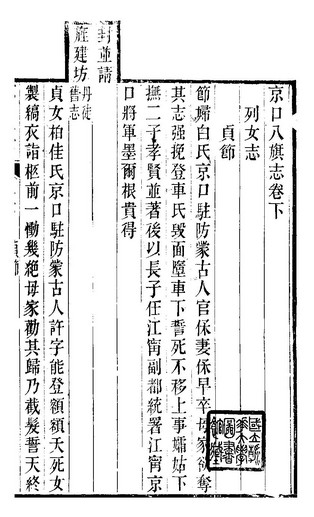 京口八旗志卷下
列女志
貞節
節婦白氏京口駐防蒙古人官保妻保早卒母家欲奪
其志强挽登車氏毀面墮車下誓死不移上事孀姑下
撫二子孝賢並著後以長子任江甯副都統署江甯京
口將軍墨爾根貴得
封並請
旌建坊丹徒舊志
貞女柏佳氏京口駐防蒙古人許字能登額額夭死女
製縞衣詣柩前一慟幾絕母家勸其歸乃截髮誓天終